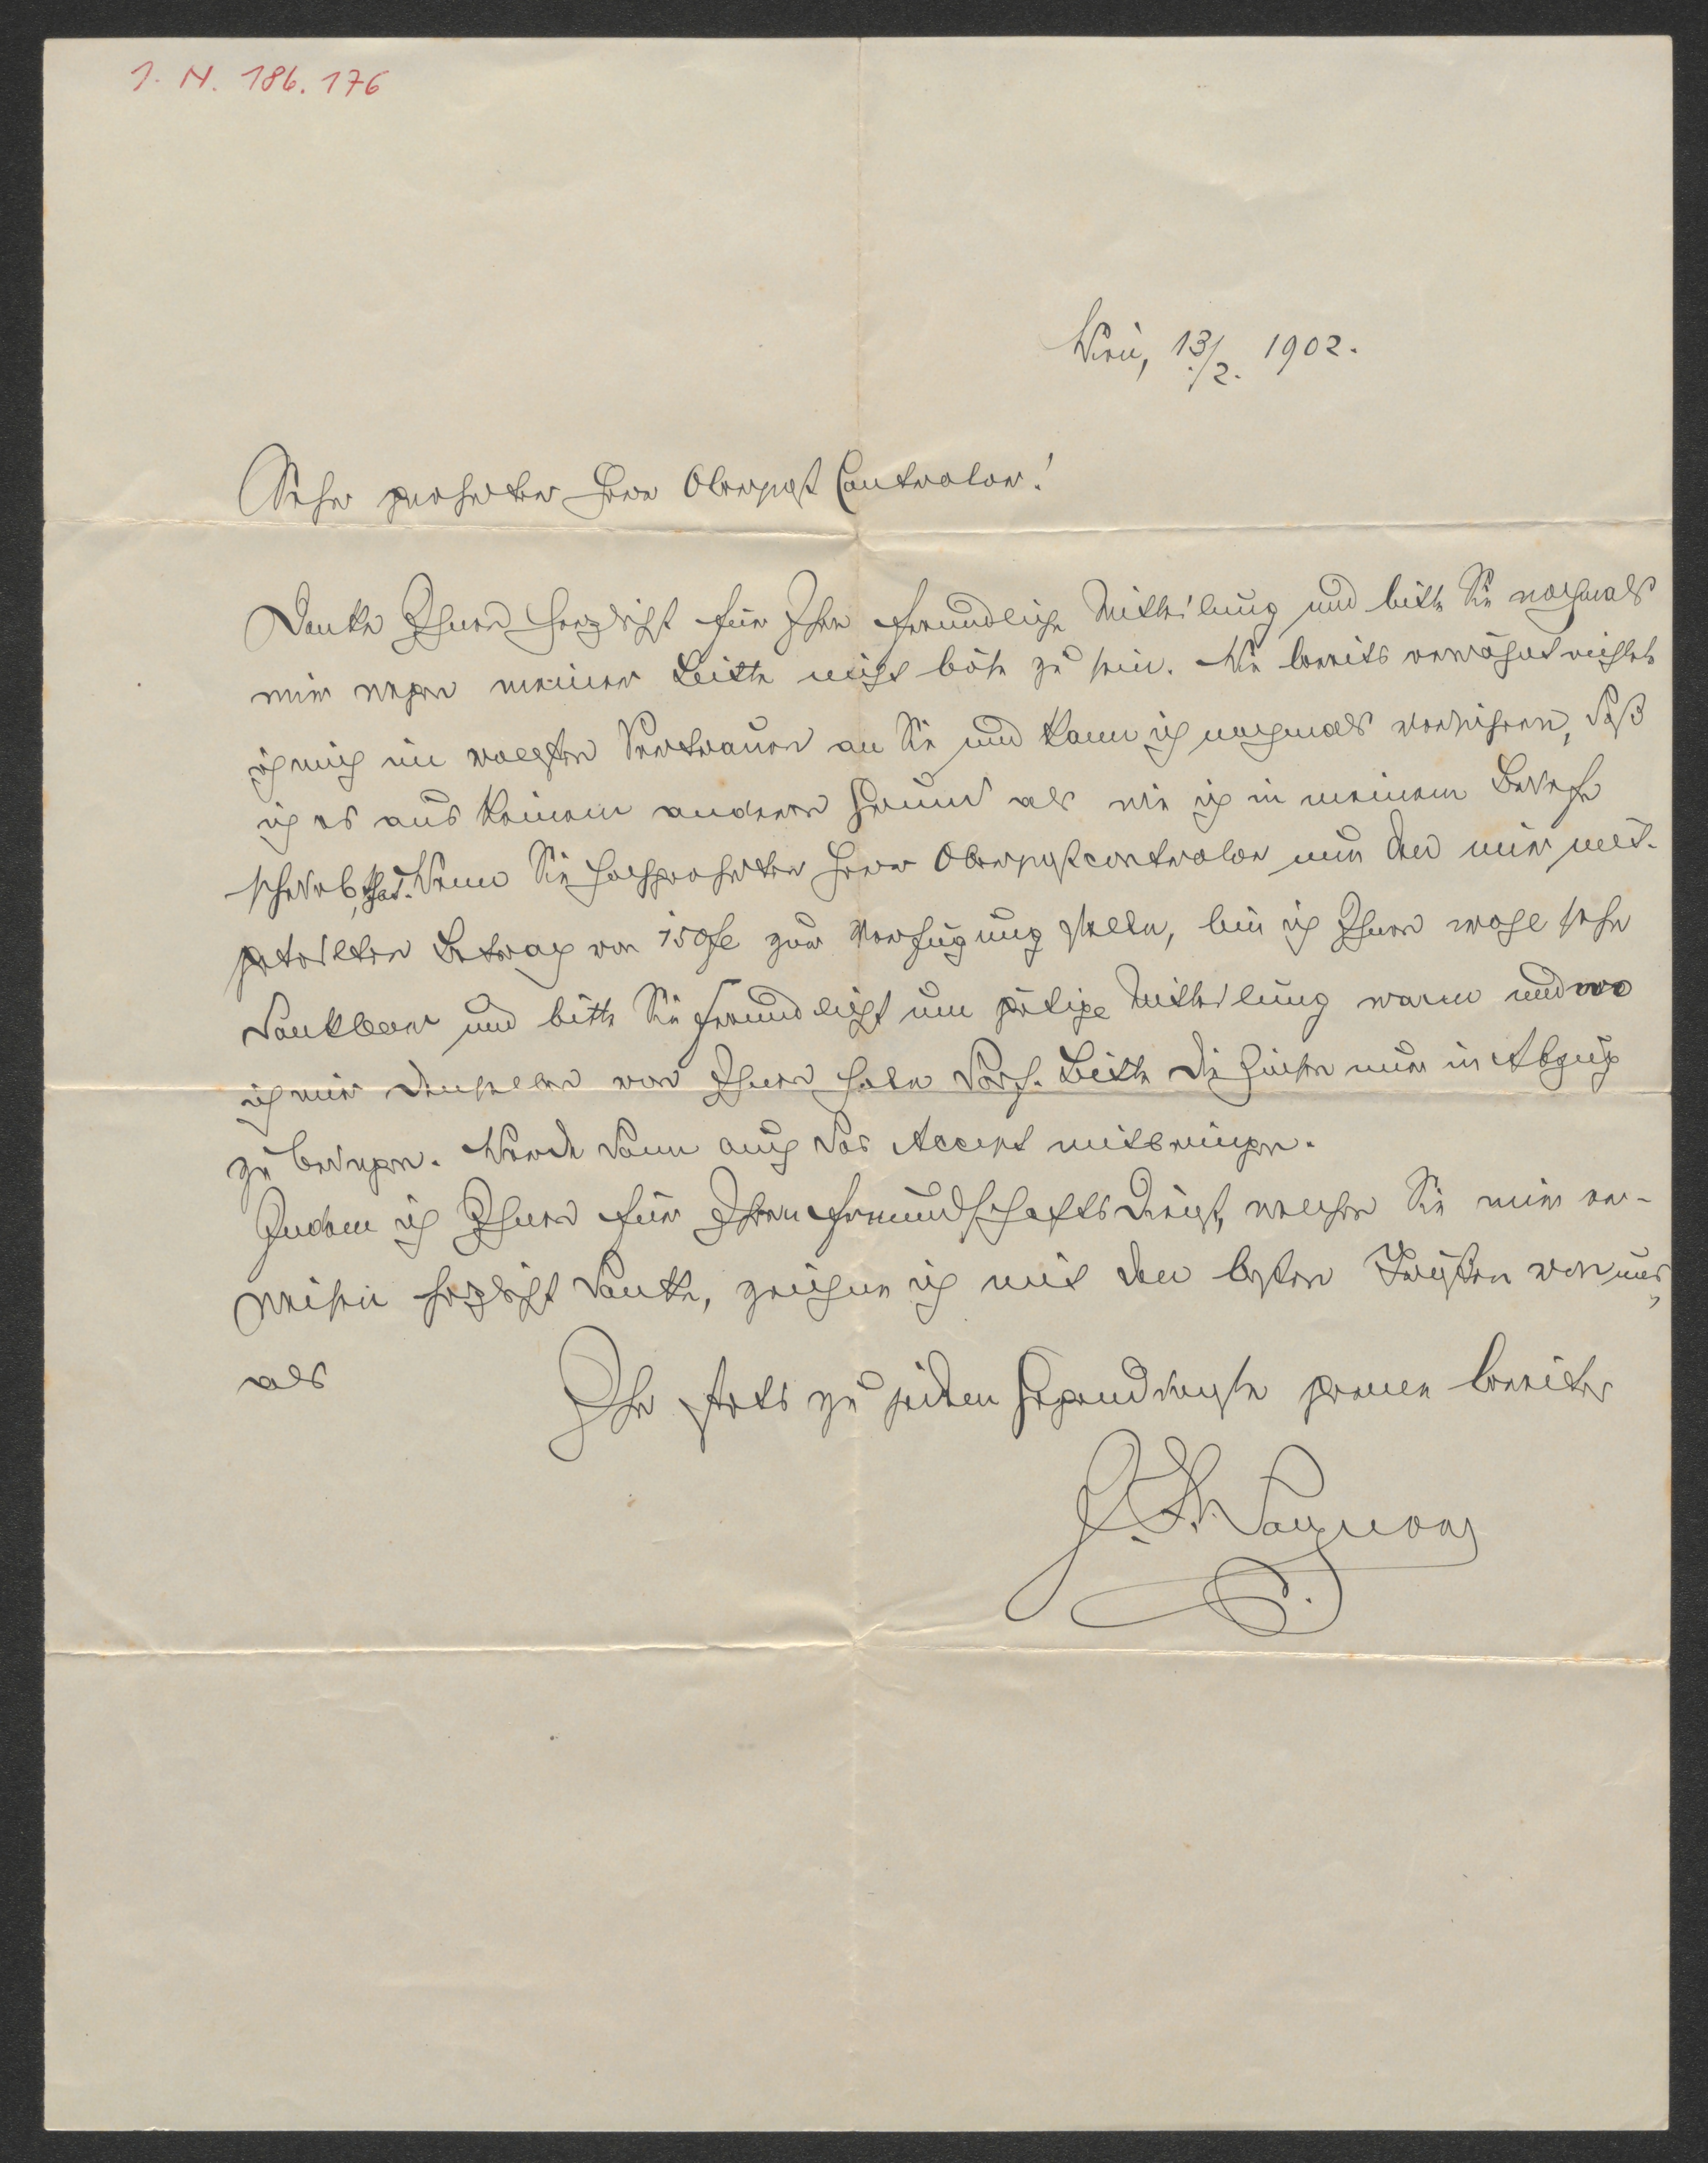 I. N. 186.176
Wien, 13./2. 1902.
Sehr geehrter Herr Oberpost Controlor!
Danke Ihnen herzlichst für Ihre freundliche Mittheilung und bitte Sie nochmals
mir wegen meiner Bitte nicht böse zu sein. Wie bereits erwähnt richtete
ich mich im vollsten Vertrauen an Sie und kann ich nochmals versichern, daß
ich es aus keinem anderen Grund als wie ich in meinem Briefe
schrieb, that. Wenn Sie hochgeehrter Herr Oberpostcontrolor nun den mir mit-
geteilten Betrag von 150 fl zur Verfügung stellen, bin ich Ihnen wohl sehr
dankbar und bitte Sie freundlichst um gütige Mittheilung wann und wo
ich mir denselben von Ihnen hole doch. Bitte die Zinsen nur in Abzug
zu bringen. Werde dann auch das Accept mitbringen.
Indem ich Ihnen für Ihren Freundschaftsdienst, welchen Sie mir er-
weisen herzlichst danke, zeichne ich mit den besten Grüßen von uns,
als
Ihr stets zu jedem Gegendienste gerne bereiter